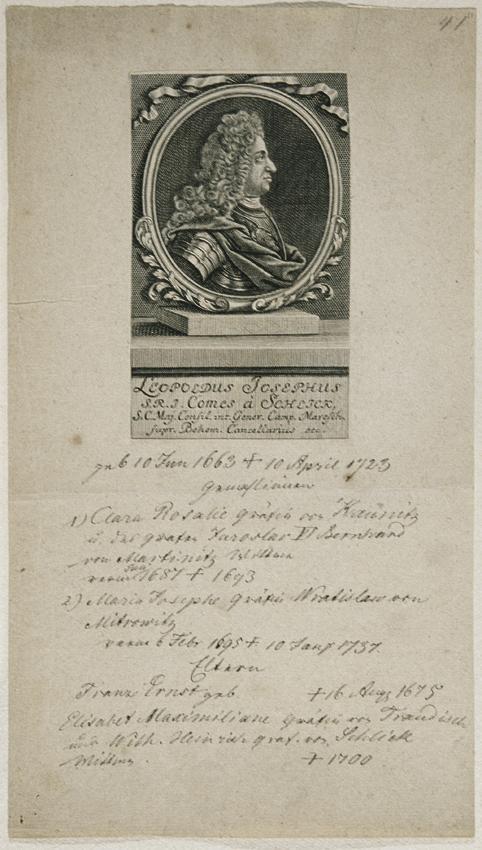 41
LEOPOLDUS JOSEPHUS
S.R.I. Comes à SCHLICK,
S.C.Maj. Consil. int. Gener. Camp. Maresch.
supr. Bohem. Cancellarius etc.
geb 10 Jun 1663 + 10 April 1723
Gemahlinnen
1) Clara Rosalie Gräfin von Kaunitz
u. des Grafen Jaroslav VI Bernhard
von Martinitz Wittwe
verm 1687 + 1693
2) Maria Josephe Gräfin Wratislaw von
Mitrowitz
verm 6 Febr 1695 + 10 1737.
Eltern
Franz Ernst geb + 16 Aug 1675
Elisabet Maximiliane Gräfin von
und Wilh. Heinrich Graf. von Schlick
Wittwe. + 1700